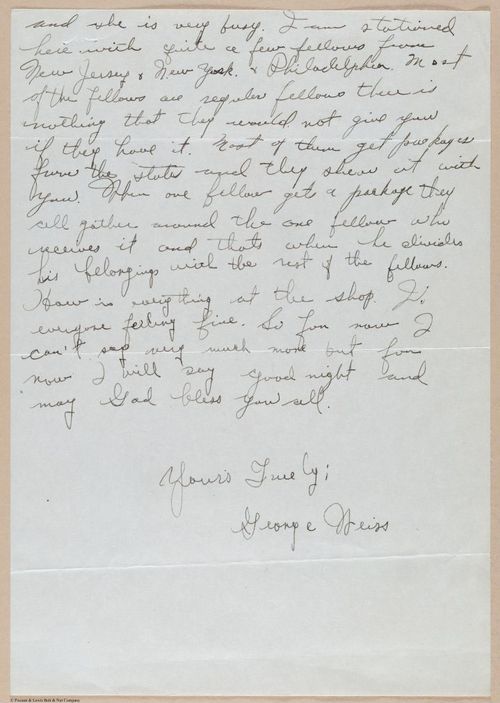 and she is very busy. I am stationed
here with quite a few fellows from
New Jersey & New York. & Philadelphia. Most
of the fellows are regular fellows there is
nothing that they would not give you
if they have it. Most of them get packages
from the states and they share it with
you. When one fellow gets a package they
all gather around the one fellow who
receives it and thats when he divides
his belongings with the rest of the fellows.
How is everything at the shop. Is
everyone feeling fine. So for now I
can't say very much more but for
now I will say good night and
may God bless you all.
Yours Truely;
George Weiss
© Pocono & Lewis Bolt & Nut Company